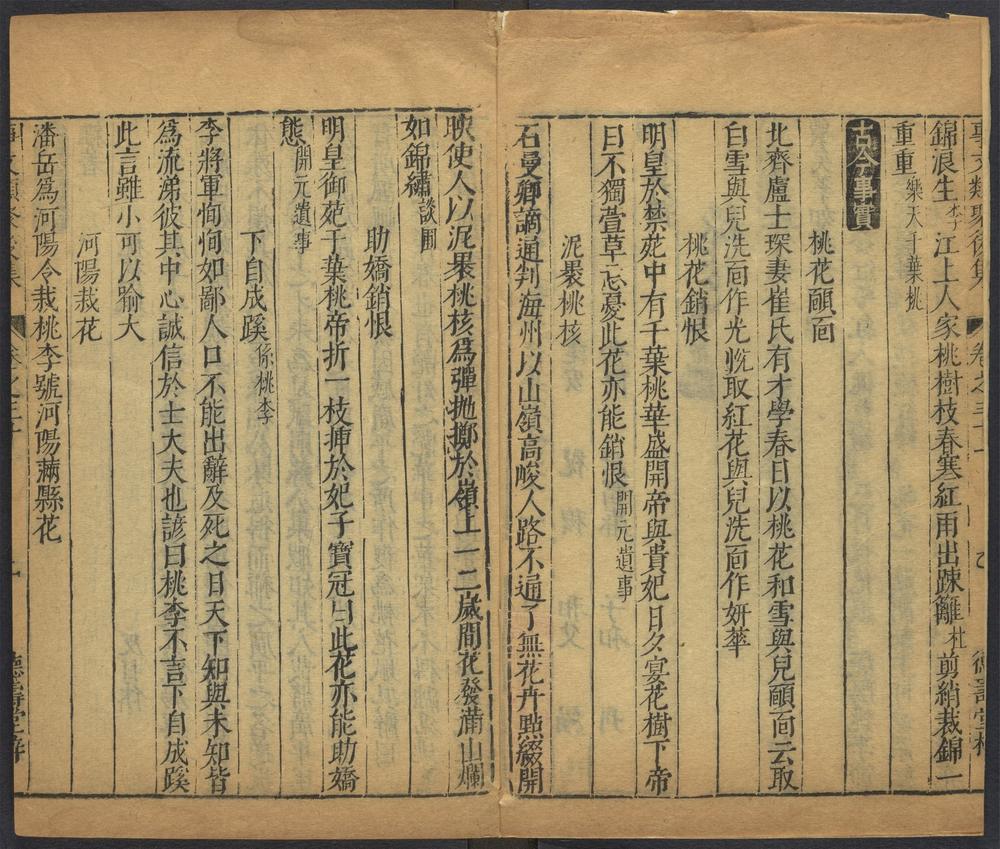 事文類聚後集 卷之三十一 德壽堂梓
錦浪生李 江上人家桃樹枝春寒紅雨出踈籬杜 剪綃裁錦一
重重樂天千葉桃
古今事實
桃花靧靣
北齊盧士琛妻崔氏有才學春日以桃花和雪與兒靧靣云取
白雪與兒洗靣作光恱取紅花與兒洗靣作妍華
桃花銷恨
明皇於禁苑中有千葉桃華盛開帝與貴妃日夕宴花樹下帝
曰不獨萱草忘憂此花亦能銷恨開元遺事
泥褁桃核
石曼卿謫通判海州以山嶺高峻人路不通了無花卉點綴開
映使人以泥褁桃核爲彈拋擲於嶺上一二歲間花發滿山爛
如錦繡談圃
助嬌銷恨
明皇御苑千葉桃帝折一枝揷於妃子寶冠曰此花亦能助嬌
態開元遺事
下自成蹊係桃李
李將軍恂恂如鄙人口不能出辭及死之日天下知與未知皆
爲流涕彼其中心誠信於士大夫也諺曰桃李不言下自成蹊
此言雖小可以喻大
河陽栽花
潘岳爲河陽令栽桃李號河陽滿縣花
事文類聚後集 卷之三十 德壽堂梓